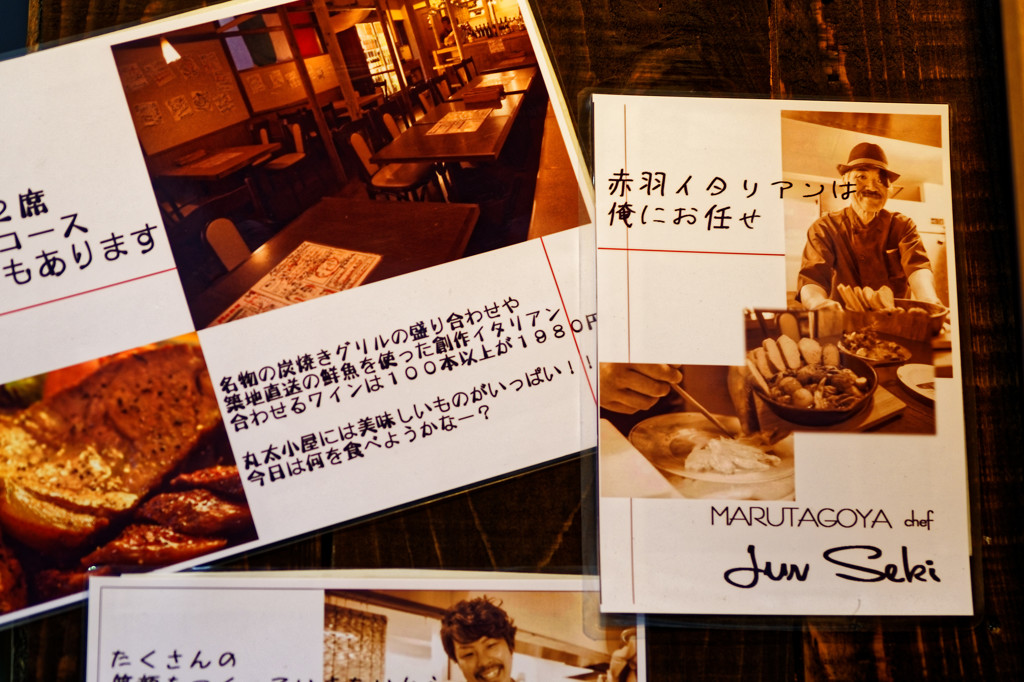 ２席
コース
もあります
名物の炭焼きグリルの盛り合わせや
築地直送の鮮魚を使った創作イタリアン
合わせるワインは１００本以上が１９８０円！！
丸太小屋には美味しいものがいっぱい！
今日は何を食べようかなー？
赤羽イタリアンは
俺にお任せ
MARUTAGOYA chef
Jun Seki
たくさんの